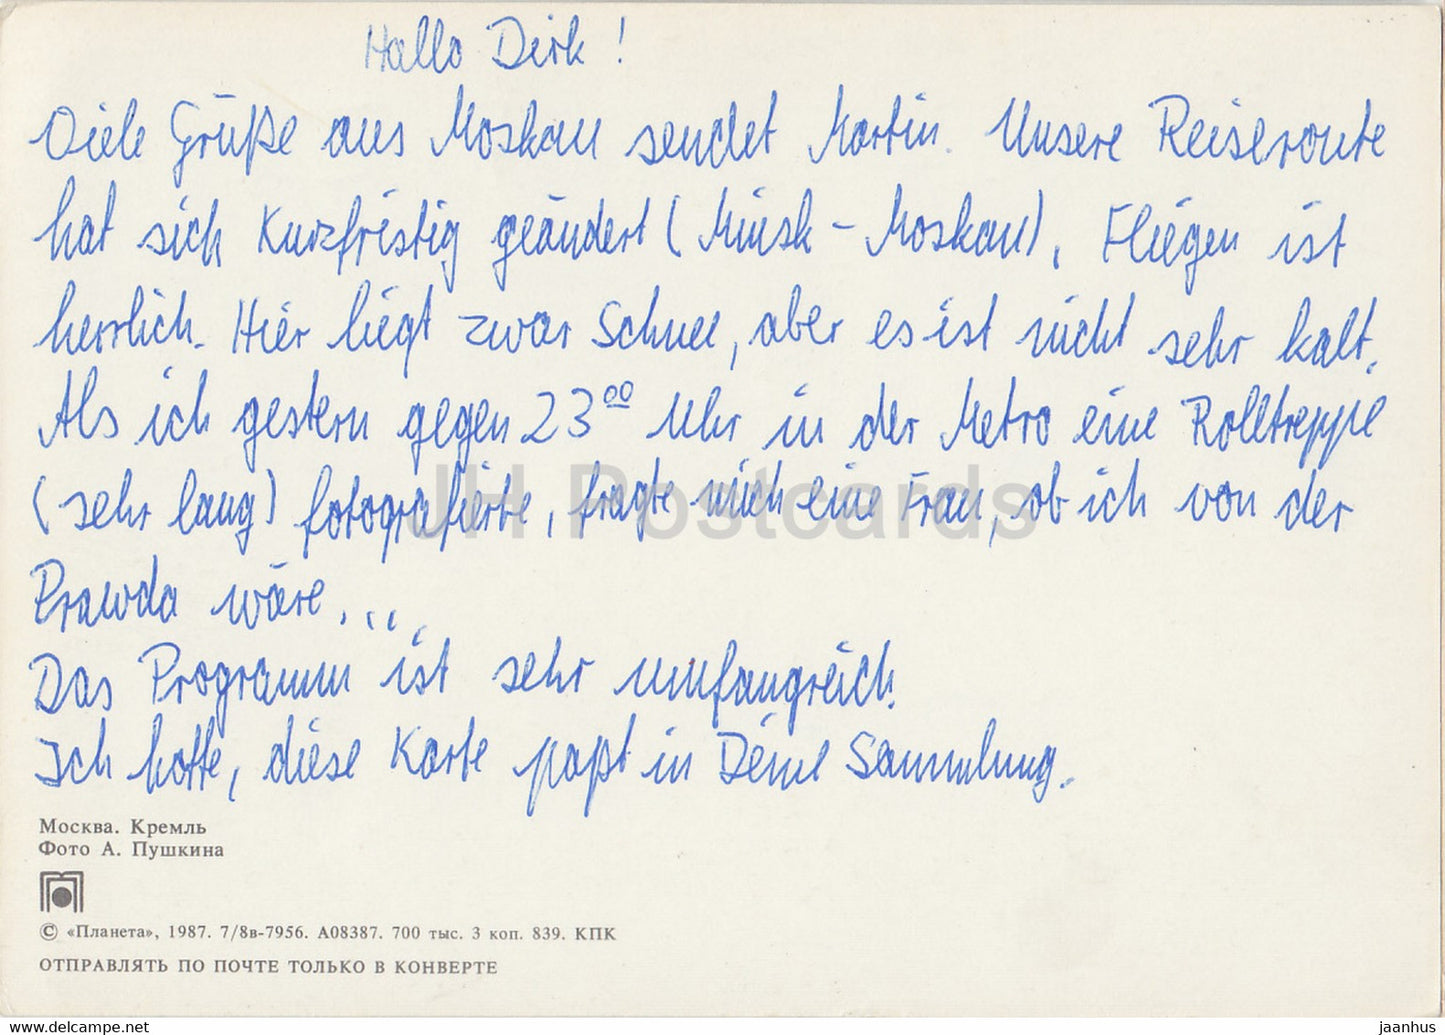 Hallo Dirk !
Viele Grüße aus Moskau sendet Martin. Unsere Reiseroute
hat sich kurzfristig geändert (Minsk – Moskau). Fliegen ist
herrlich. Hier liegt zwar Schnee, aber es ist nicht sehr kalt.
Als ich gestern gegen 23 00 Uhr in der Metro eine Rolltreppe
(sehr lang) fotografierte, fragte mich eine Frau, ob ich von der
Prawda wäre....
Das Programm ist sehr umfangreich.
Ich hoffe, diese Karte paßt in Deine Sammlung.
JH Postcards
Москва. Кремль
Фото А. Пушкина
© «Планета», 1987. 7/8в-7956. А08387. 700 тыс. 3 коп. 839. КПК
ОТПРАВЛЯТЬ ПО ПОЧТЕ ТОЛЬКО В КОНВЕРТЕ
www.delcampe.net
jaanhus